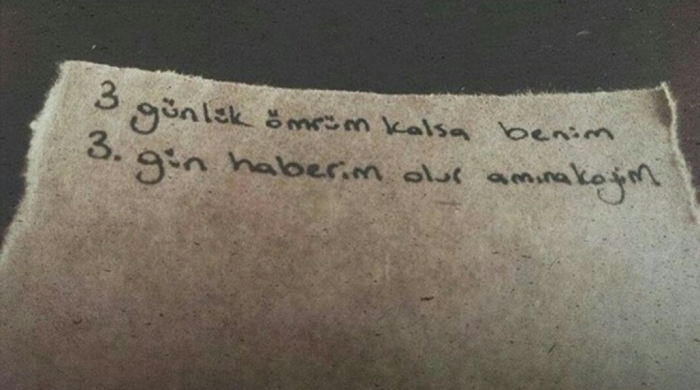 3 günlük ömrüm kalsa benim
3. gün haberim olur amınakoyim